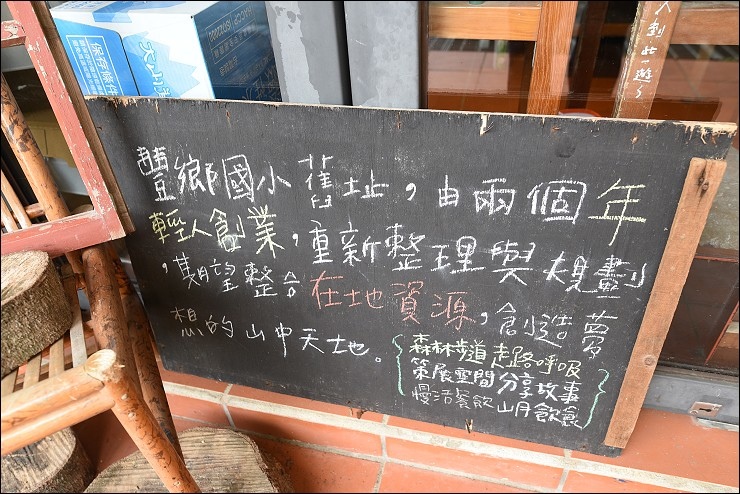 人到此一遊
豐鄉國小舊址，由兩個年
輕人創業，重新整理與規劃
，期望整合在地資源，創造夢
想的山中天地。
森林步道 走路呼吸
策展空間 分享故事
慢活餐飲 山月飲食